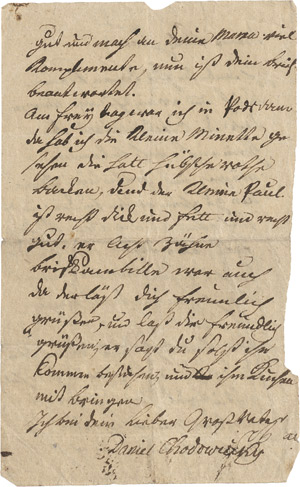 gut und mach an deine Mama viel
Komplimente, nun ist dein brief
beantwortet.
Am freytag war ich in Potsdam
da hab ich die kleine Minette ge
sehen die hatt hübsche rothe
backen, und der kleine Paul
ist recht dick und fett und recht
gut. er Acht Zähne
briskambille war auch
da der läst dich freundlich
grüßen, und laß dir freundlich
grüßen, er sagt du solst ihn
komm besuchen, und ihm kuchen
mit bringen
Ich bin dein lieber Groß Vater
Daniel Chodowiecky